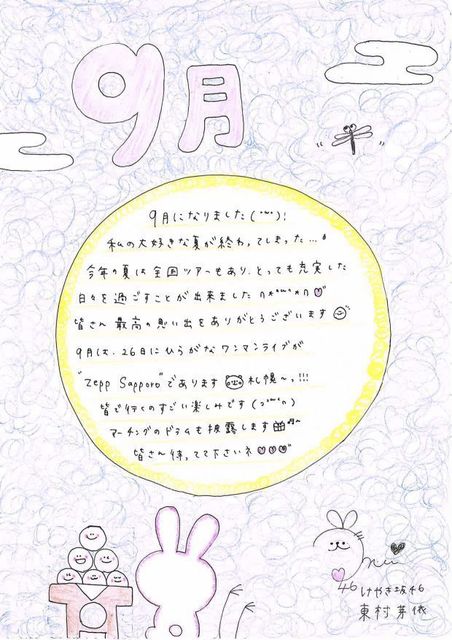 9月
9月になりました(˙˘˙)!
私の大好きな夏が終わってしまった…。
今年の夏は全国ツアーもあり、とっても充実した
日々を過ごすことが出来ました
皆さん最高の思い出をありがとうございます
9月は、26日にひらがなワンマンライブが
"Zepp Sapporo"であります 札幌〜っ!!!
皆で行くのすごい楽しみです
マーチングのドラムも披露します
皆さん待ってて下さいネ
46 けやき坂46
東村芽依